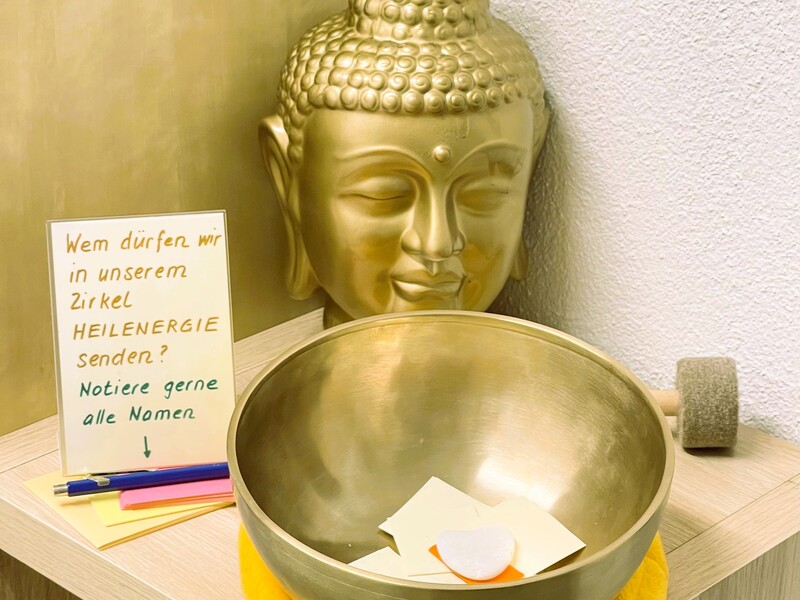 Wem dürfen wir
in unserem
Zirkel
HEILENERGIE
senden?
Notiere gerne
alle Namen